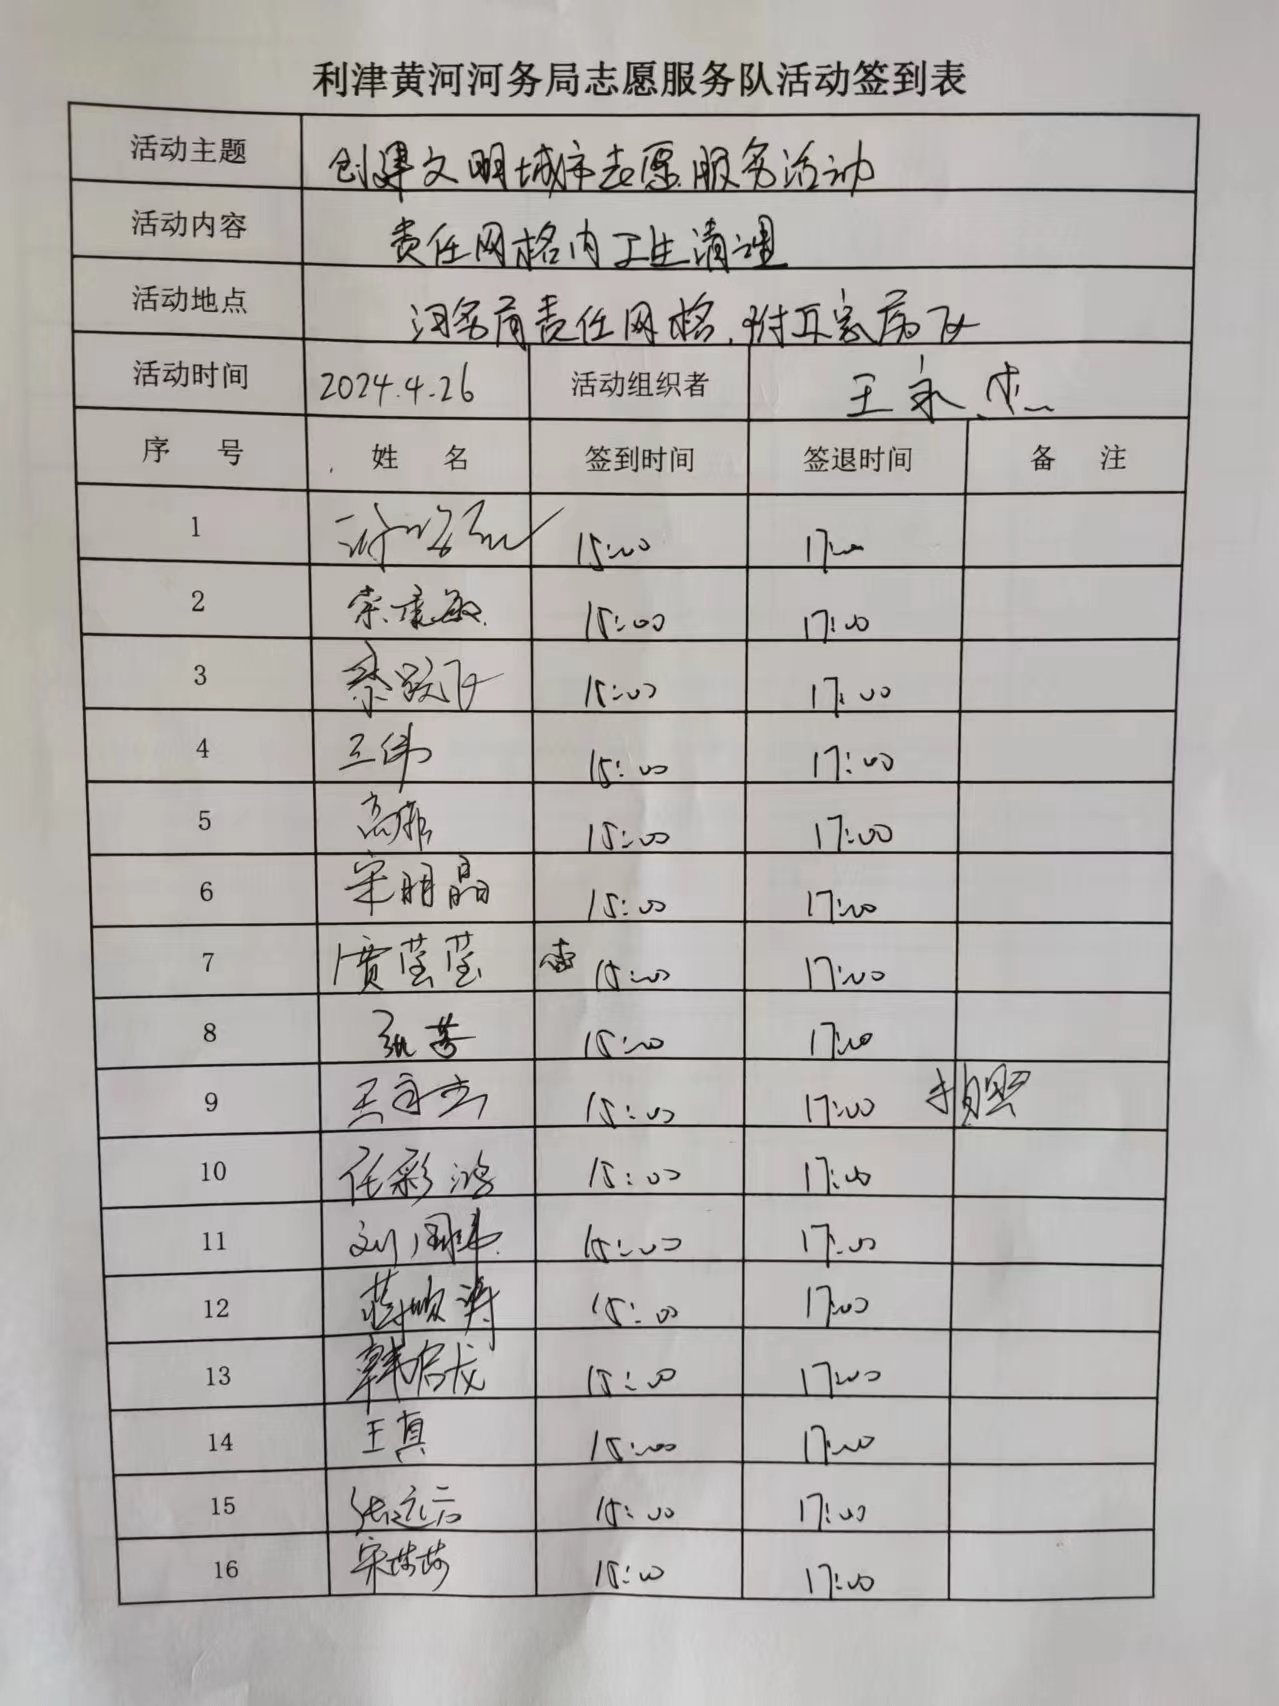 利津黄河河务局志愿服务队活动签到表
活动主题 创建文明城市志愿服务活动
活动内容 责任网格内卫生清理
活动地点 河务局责任网格、附五家属区
活动时间 2024.4.26 活动组织者 王永杰
序号 姓名 签到时间 签退时间 备注
1 15:00 17:00
2 15:00 17:00
3 15:00 17:00
4 王伟 15:00 17:00
5 高雅 15:00 17:00
6 宋明晶 15:00 17:00
7 贾莹莹 15:00 17:00
8 15:00 17:00
9 王永杰 15:00 17:00 拍照
10 任彩鸿 15:00 17:00
11 15:00 17:00
12 薛顺涛 15:00 17:00
13 韩启龙 15:00 17:00
14 王真 15:00 17:00
15 15:00 17:00
16 15:00 17:00